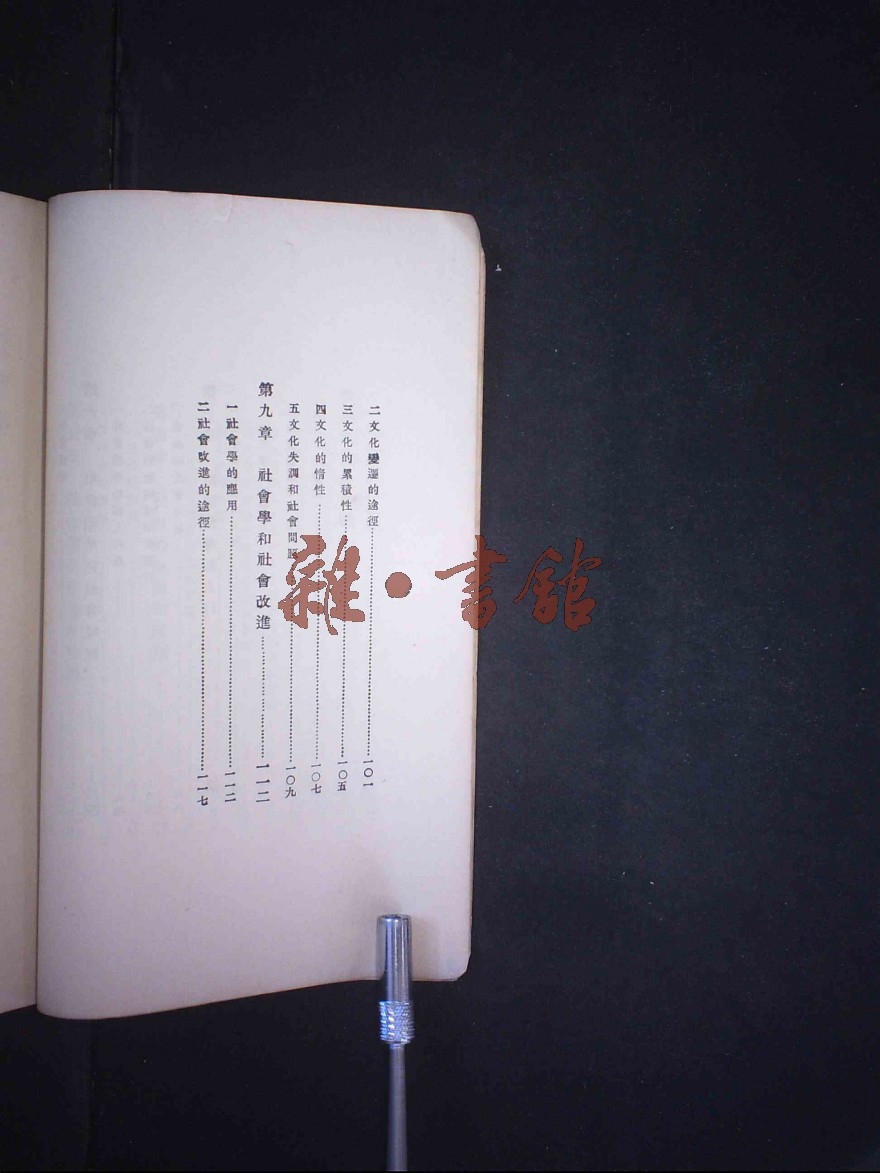 二 文化變遷的途徑……一〇一
三 文化的累積性……一〇五
四 文化的惰性……一〇七
五 文化失調和社會問題……一〇九
第九章 社會學和社會改進……一一二
一 社會學的應用……一一二
二 社會改進的途徑……一一七
雜·書館